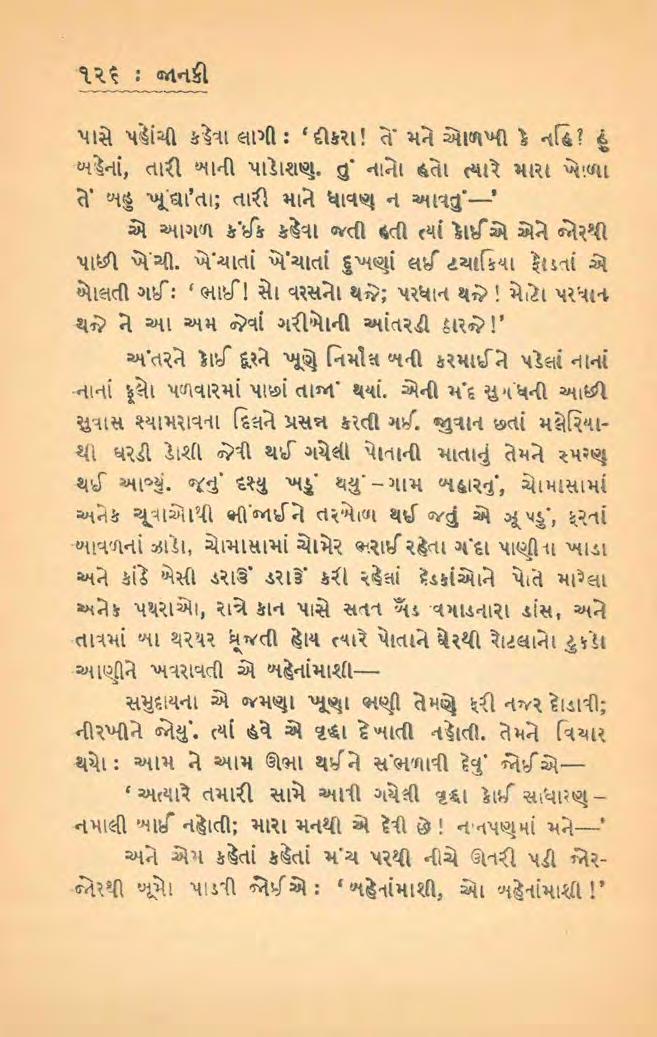 ૧૨૬ : જાનકી
પાસે પહોંચી કહેવા લાગી : ‘ દીકરા! તેં મને ઓળખી કે નહિ? હું
બહેનાં, તારી બાની પાડોશણ. તું નાનો હતો ત્યારે મારા ખોળા
તેં બહુ ખૂંદ્યા’તા; તારી માને ધાવણ ન આવતું—’
એ આગળ કંઈક કહેવા જતી હતી ત્યાં કોઈએ એને જોરથી
પાછી ખેંચી. ખેંચાતાં ખેંચાતાં દુખણાં લઈ ટચાકિયા ફોડતાં એ
બોલતી ગઈ: ‘ ભાઈ! સો વરસનો થજે; પરધાન થજે ! મોટો પરધાન
થજે ને આ અમ જેવાં ગરીબોની આંતરડી ઠારજે!’
અંતરને કોઈ દૂરને ખૂણે નિર્માલ બની કરમાઈને પડેલાં નાનાં
નાનાં ફૂલો પળવારમાં પાછાં તાજાં થયાં. એની મંદ સુગંધની આછી
સુવાસ શ્યામરાવના દિલને પ્રસન્ન કરતી ગઈ. જુવાન છતાં મલેરિયા-
થી ઘરડી ડોશી જેવી થઈ ગયેલી પોતાની માતાનું તેમને સ્મરણ
થઈ આવ્યું. જૂનું દશ્ય ખડું થયું – ગામ બહારનું, ચોમાસામાં
અનેક ચૂવાઓથી ભીંજાઈને તરબોળ થઈ જતું એ ઝૂંપડું, ફરતાં
બાવળનાં ઝાડો, ચોમાસામાં ચોમેર ભરાઈ રહેતા ગંદા પાણીના ખાડા
અને કાંઠે બેસી ડરાઉં ડરાઉં કરી રહેલાં દેડકાંઓને પોતે મારેલા
અનેક પથરાઓ, રાત્રે કાન પાસે સતત બૅંડ વગાડનારા ડાંસ, અને
તાવમાં બા થરથર ધ્રૂજતી હોય ત્યારે પોતાને ઘેરથી રોટલાનો ટુકડો
આણીને ખવરાવતી એ બહેનાંમાશી—
સમુદાયના એ જમણા ખૂણા ભણી તેમણે ફરી નજર દોડાવી;
નીરખીને જોયું. ત્યાં હવે એ વૃદ્ધા દેખાતી નહોતી. તેમને વિચાર
થયો : આમ ને આમ ઊભા થઈને સંભળાવી દેવું જોઈએ—
‘ અત્યારે તમારી સામે આવી ગયેલી વૃદ્ધા કોઈ સાધારણ –
નમાલી બાઈ નહોતી; મારા મનથી એ દેવી છે ! નાનપણમાં મને—’
અને એમ કહેતાં કહેતાં મંચ પરથી નીચે ઊતરી પડી જોર-
જોરથી બૂમો પાડવી જોઈએ : ‘ બહેનાંમાશી, ઓ બહેનાંમાશી !’